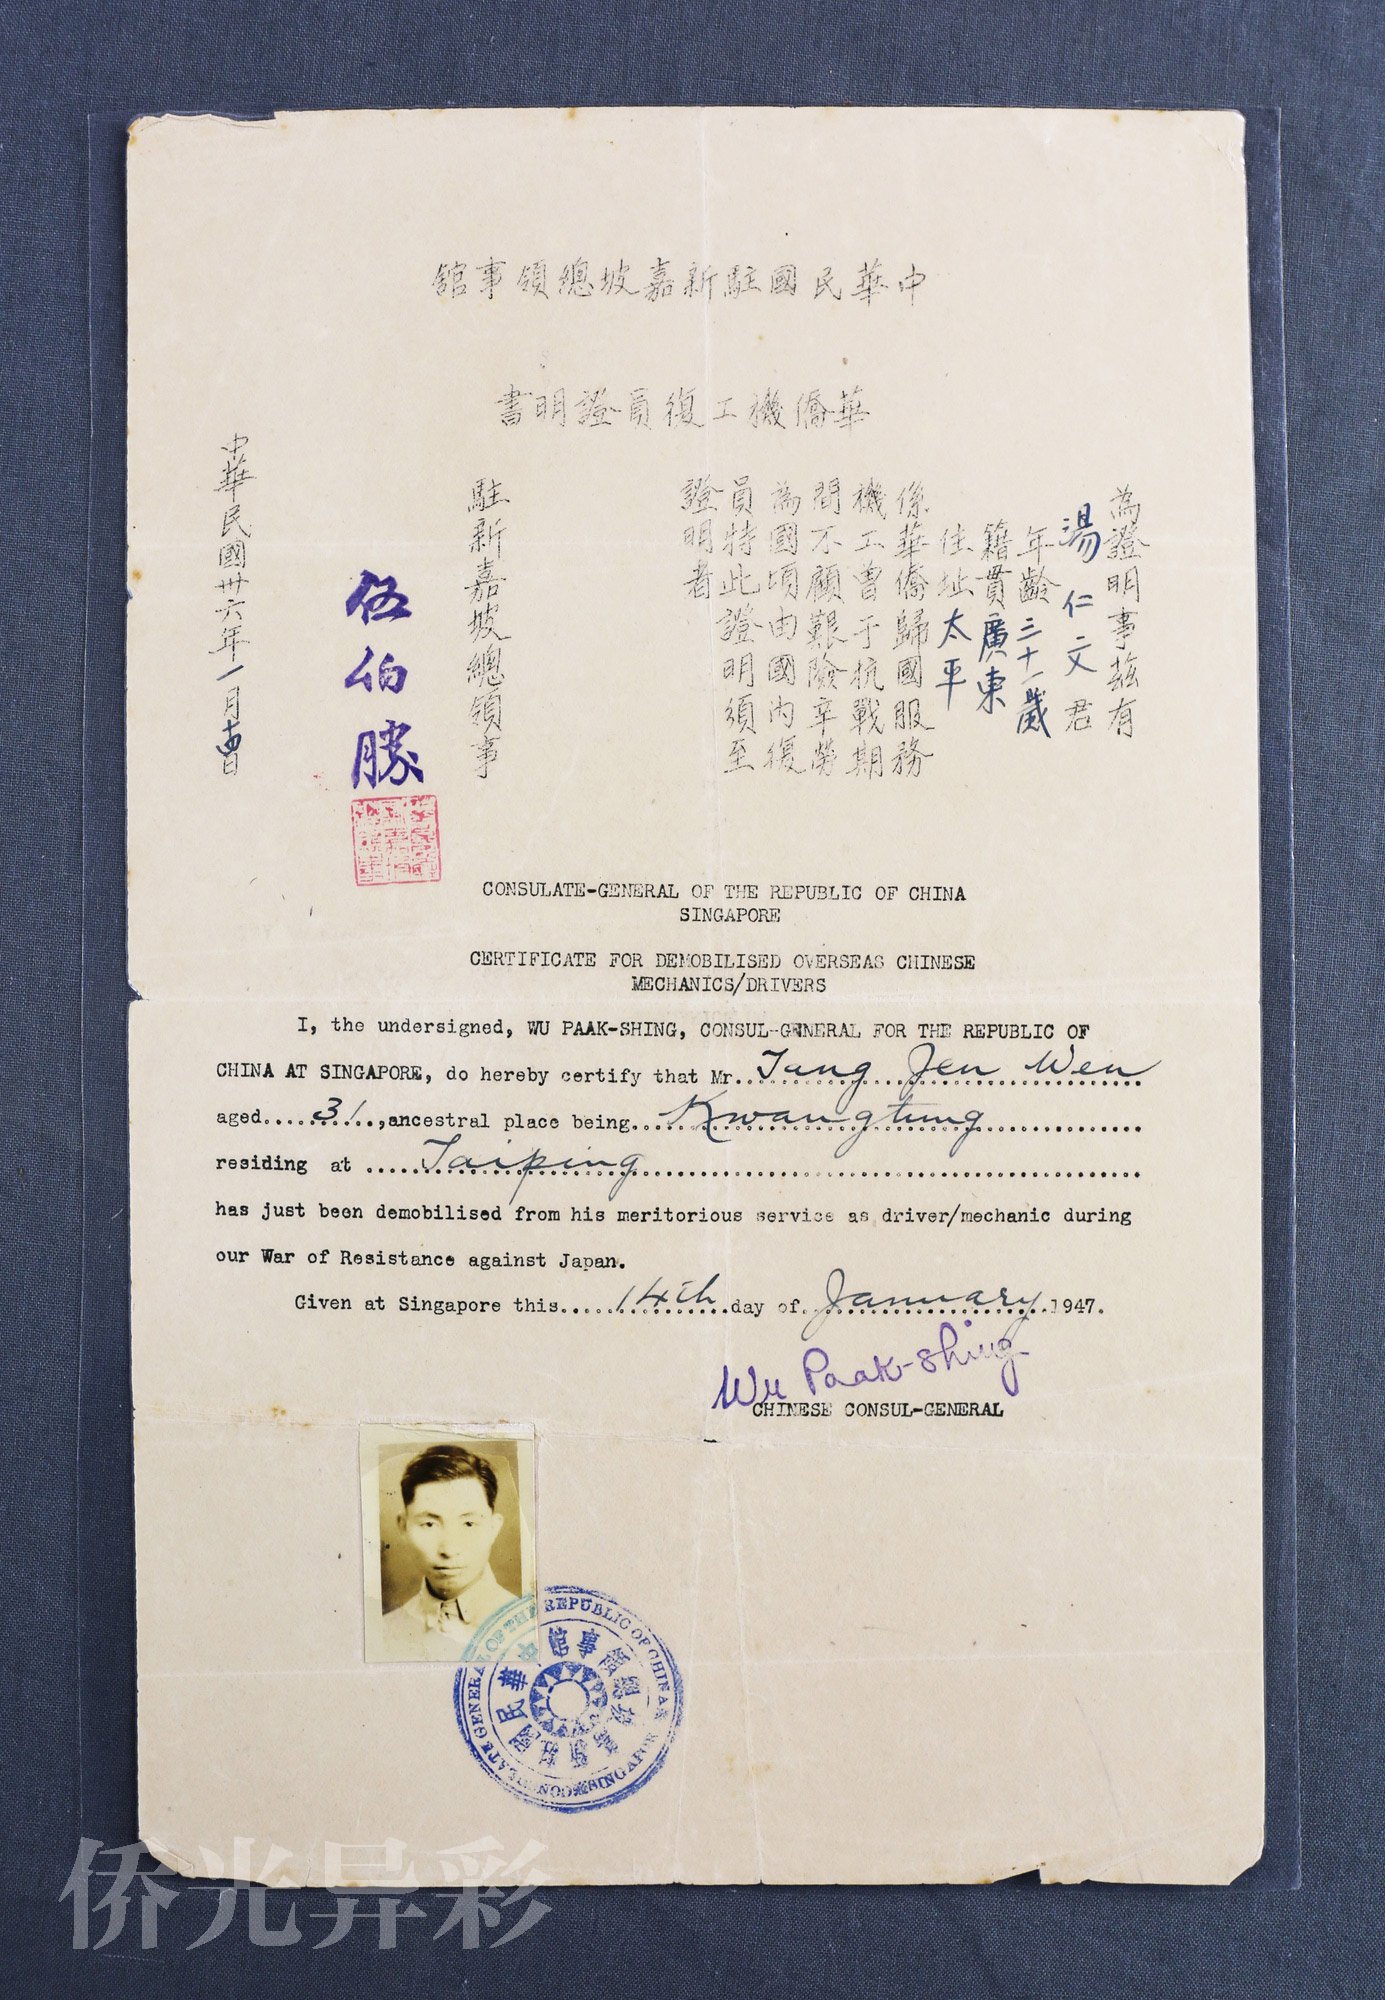 中華民國駐新嘉坡總領事館
華僑機工復員證明書
為證明事茲有
湯仁文君
年齡三十一歲
籍貫廣東
住址太平
係華僑歸國服務
機工曾于抗戰期
間不顧艱險辛勞
為國頃由國內復
員特此證明須至
證明者
駐新嘉坡總領事
伍伯勝
中華民國卅六年一月十四日
CONSULATE-GENERAL OF THE REPUBLIC OF CHINA
SINGAPORE
CERTIFICATE FOR DEMOBILISED OVERSEAS CHINESE
MECHANICS/DRIVERS
I, the undersigned, WU PAAK-SHING, CONSUL-GENERAL FOR THE REPUBLIC OF
CHINA AT SINGAPORE, do hereby certify that Mr. Tang Jen Wen
aged 31, ancestral place being Kwangtung
residing at Taiping
has just been demobilised from his meritorious service as driver/mechanic during
our War of Resistance against Japan.
Given at Singapore this 14th day of January 1947.
Wu Paak-shing
CHINESE CONSUL-GENERAL
CONSULATE GENERAL OF THE REPUBLIC OF CHINA
SINGAPORE
中華民國駐新嘉坡總領事館
侨光异彩